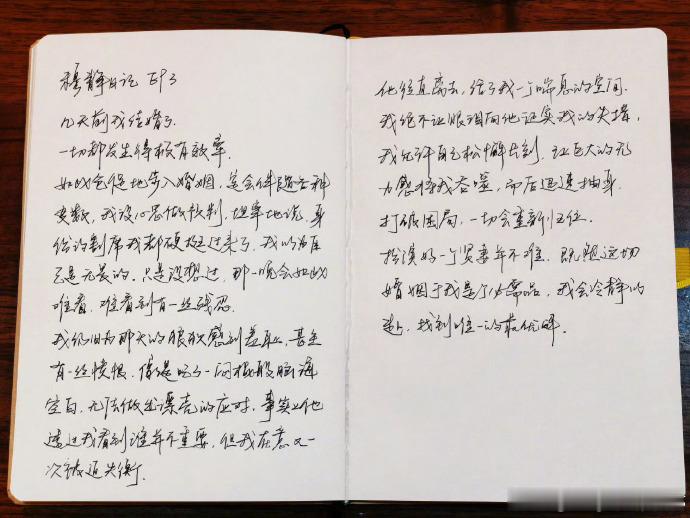 穆静日记 EP3
几天前我结婚了
一切都发生得极有效率.
如此仓促地步入婚姻, 定会伴随各种
变数, 我没心思做预判, 坦率地说, 身
份的割席我都硬挺过来了, 我的为尊
已是无畏的. 只是没想过, 那一晚会如此
难看, 难看到有一丝残忍.
我仍旧为那天的狠狈感到羞耻, 甚至
有一丝愤恨, 像是吃了一闷棍般脑海
空白, 无法做出漂亮的应对, 事实上他
透过我看到谁并不重要, 但我在意又一
次被迫失衡了.
他径直离去, 给了我一个喘息的空间.
我绝不让眼泪向他证实我的失措,
我允许自己松懈片刻, 让巨大的无
力感将我吞噬, 而后迅速抽身.
打破困局, 一切会重新归位.
扮演好一个贤妻并不难, 既然这切
婚姻于我是个必需品, 我会冷静的
走, 找到唯一的最优解.